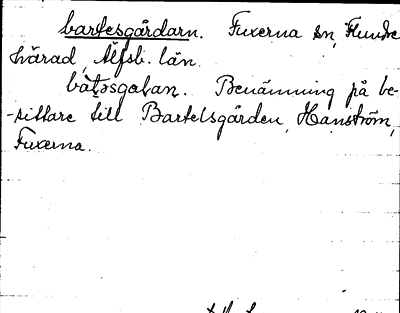 bartesgårdarn. Fuxerna sn, Flundre
härad, Älfsb. län.
båtəsgatan. Benämning på be-
-sittare till Bartelsgården, Hanström,
Fuxerna.